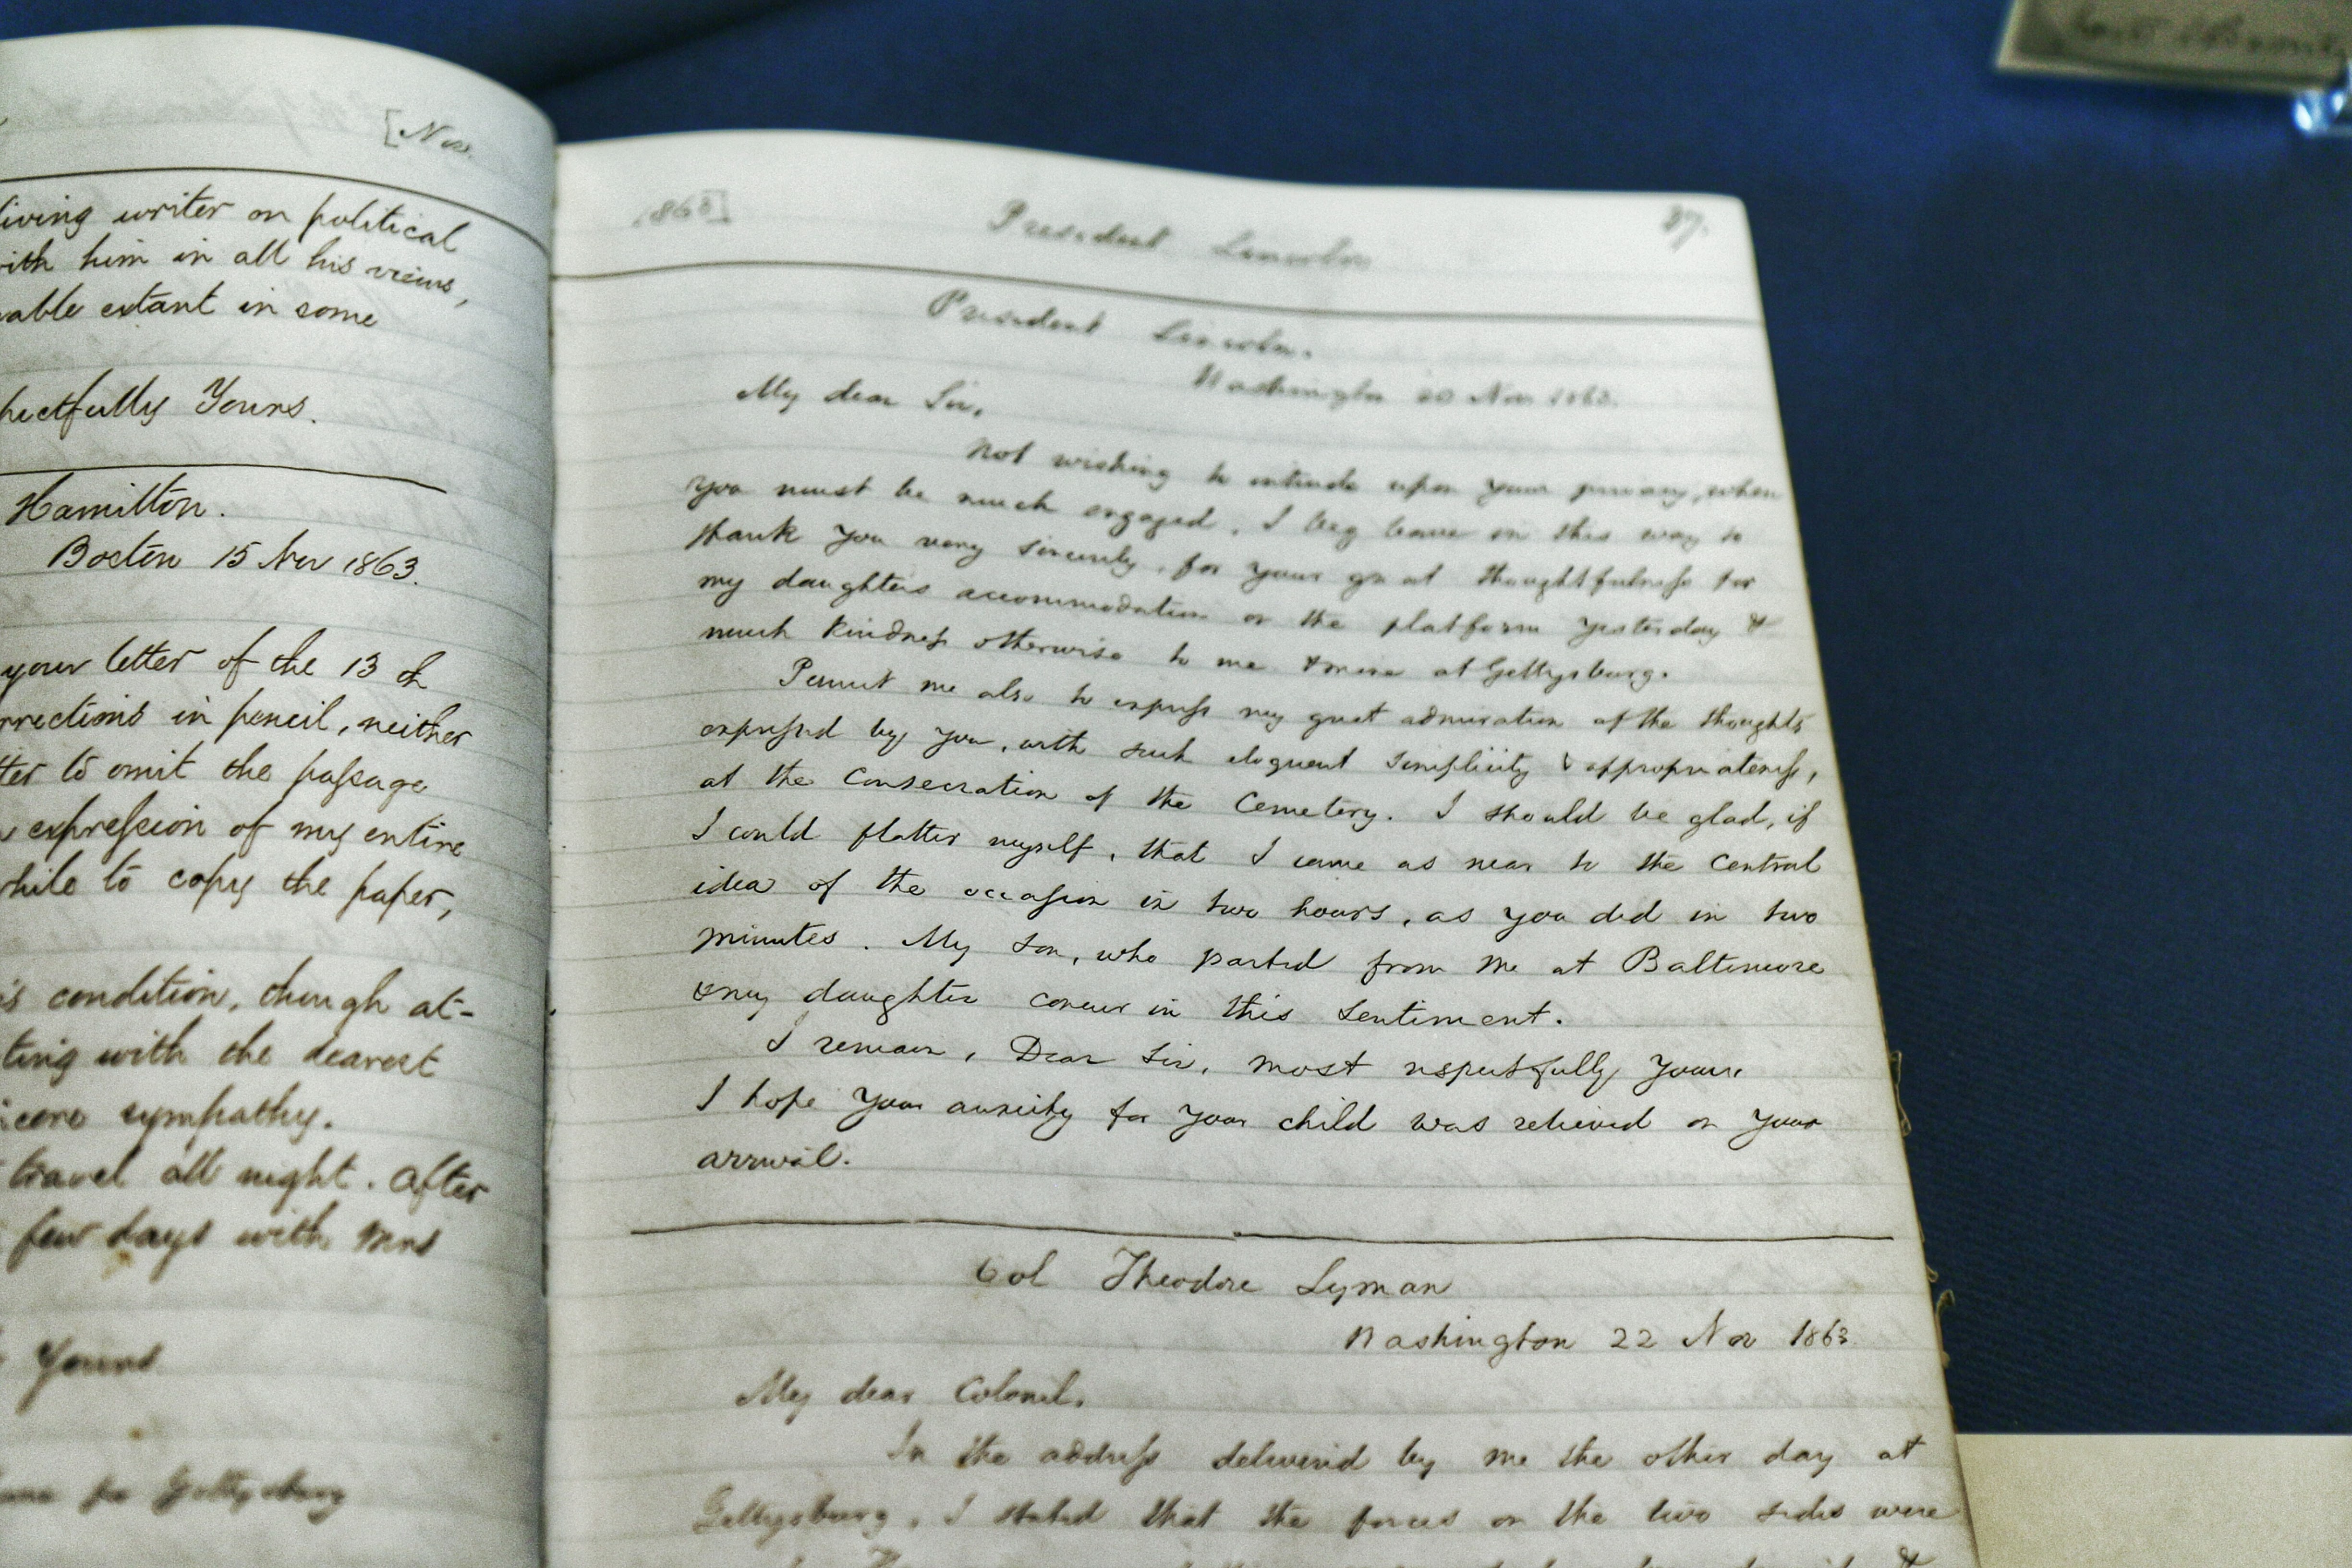 [Nov.
living writer on political
with him in all his views,
extant in some
Yours.
Hamilton.
Boston 15 Nov 1863.
your letter of the 13 th
in pencil, neither
to omit the passage
expression of my entire
to copy the paper,
condition, though at-
with the dearest
sympathy.
travel all night. After
few days with Mrs
Yours
Gettysburg
1863] President Lincoln 37.
President Lincoln.
Washington 20 Nov 1863.
My dear Sir,
Not wishing to intrude upon your privacy, when
you must be much engaged, I beg leave in this way to
thank you very sincerely, for your great thoughtfulness for
my daughters accommodation on the platform yesterday &
much kindness otherwise to me & mine at Gettysburg.
Permit me also to express my great admiration of the thoughts
expressed by you, with such eloquent simplicity & appropriateness,
at the Consecration of the Cemetery. I should be glad, if
I could flatter myself, that I came as near to the central
idea of the occasion in two hours, as you did in two
minutes. My Son, who parted from me at Baltimore
& my daughter concur in this sentiment.
I remain, Dear Sir, most respectfully Yours.
I hope your anxiety for your child was relieved on your
arrival.
Col Theodore Lyman
Washington 22 Nov 1863.
My dear Colonel,
In the address delivered by me the other day at
Gettysburg, I stated that the forces on the two sides were